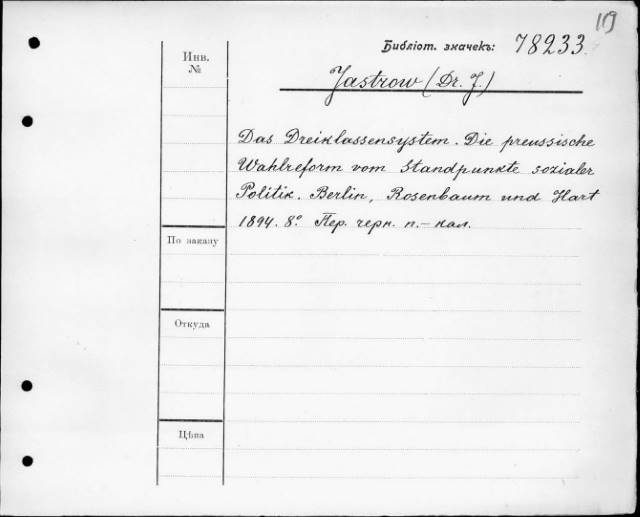 119
Библіот. значекъ: 78233.
Инв.
№
Jastrow (Dr. J.)
Das Dreiklassensystem. Die preussische
Wahlreform vom Standpunkte sozialer
Politik. Berlin, Rosenbaum und Hart
1894. 8º. Пер. черн. п.-кал.
По заказу
Откуда
Цѣна